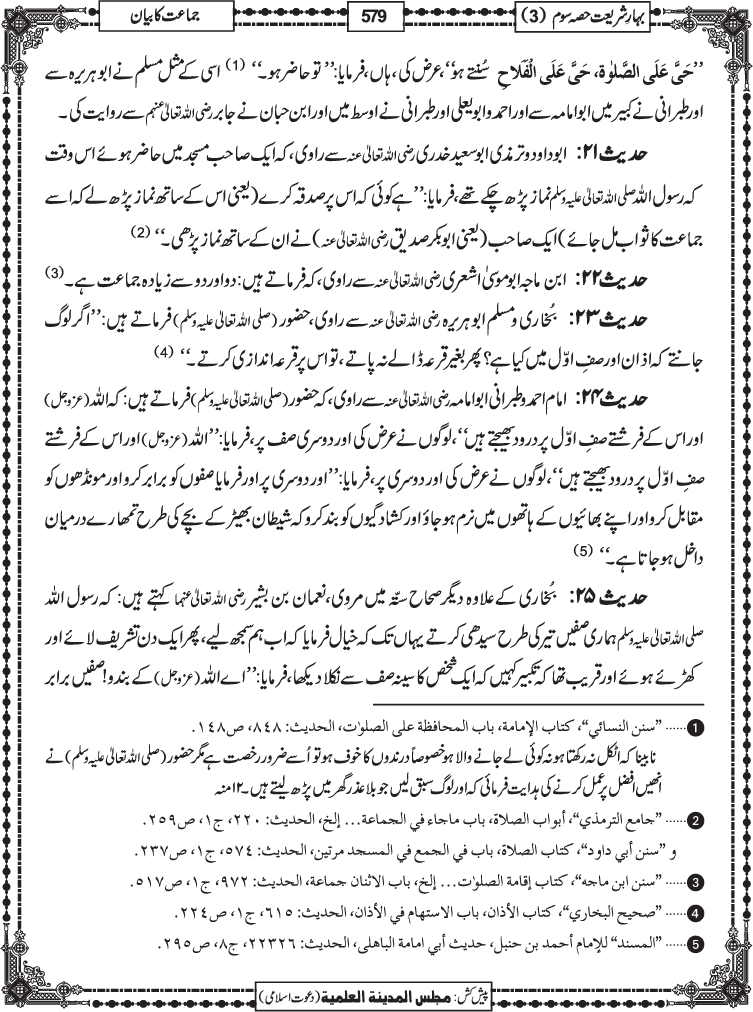 بہار شریعت حصہ سوم (3)
579
جماعت کا بیان
’’حَیَّ عَلَی الصَّلٰوۃ، حَیَّ عَلَی الْفَلَاحِ سُنتے ہو‘‘، عرض کی، ہاں، فرمایا: ’’تو حاضر ہو۔‘‘ (1) اسی کے مثل مسلم نے ابوہریرہ سے
اور طبرانی نے کبیر میں ابو امامہ سے اور احمد و ابو یعلی اور طبرانی نے اوسط میں اور ابن حبان نے جابر رضی اللہ تعالیٰ عنہم سے روایت کی۔
حدیث ۲۱: ابو داود و ترمذی ابو سعید خدری رضی اللہ تعالیٰ عنہ سے راوی، کہ ایک صاحب مسجد میں حاضر ہوئے اس وقت
کہ رسول اللہ صلی اللہ تعالیٰ علیہ وسلم نماز پڑھ چکے تھے، فرمایا: ’’ہے کوئی کہ اس پر صدقہ کرے (یعنی اس کے ساتھ نماز پڑھ لے کہ اسے
جماعت کا ثواب مل جائے) ایک صاحب (یعنی ابوبکر صدیق رضی اللہ تعالیٰ عنہ) نے ان کے ساتھ نماز پڑھی۔‘‘ (2)
حدیث ۲۲: ابن ماجہ ابو موسیٰ اشعری رضی اللہ تعالیٰ عنہ سے راوی، کہ فرماتے ہیں: دو اور دو سے زیادہ جماعت ہے۔ (3)
حدیث ۲۳: بُخاری و مسلم ابوہریرہ رضی اللہ تعالیٰ عنہ سے راوی، حضور (صلی اللہ تعالیٰ علیہ وسلم) فرماتے ہیں: ’’اگر لوگ
جانتے کہ اذان اور صفِ اوّل میں کیا ہے؟ پھر بغیر قرعہ ڈالے نہ پاتے، تو اس پر قرعہ اندازی کرتے۔‘‘ (4)
حدیث ۲۴: امام احمد و طبرانی ابو امامہ رضی اللہ تعالیٰ عنہ سے راوی، کہ حضور (صلی اللہ تعالیٰ علیہ وسلم) فرماتے ہیں: کہ اللہ (عزوجل)
اور اس کے فرشتے صفِ اوّل پر درود بھیجتے ہیں‘‘، لوگوں نے عرض کی اور دوسری صف پر، فرمایا: ’’اللہ (عزوجل) اور اس کے فرشتے
صفِ اوّل پر درود بھیجتے ہیں‘‘، لوگوں نے عرض کی اور دوسری پر، فرمایا: ’’اور دوسری پر اور فرمایا صفوں کو برابر کرو اور مونڈھوں کو
مقابل کرو اور اپنے بھائیوں کے ہاتھوں میں نرم ہو جاؤ اور کشادگیوں کو بند کرو کہ شیطان بھیڑ کے بچے کی طرح تمھارے درمیان
داخل ہو جاتا ہے۔‘‘ (5)
حدیث ۲۵: بُخاری کے علاوہ دیگر صحاح ستّہ میں مروی، نعمان بن بشیر رضی اللہ تعالیٰ عنہا کہتے ہیں: کہ رسول اللہ
صلی اللہ تعالیٰ علیہ وسلم ہماری صفیں تیر کی طرح سیدھی کرتے یہاں تک کہ خیال فرمایا کہ اب ہم سمجھ لیے، پھر ایک دن تشریف لائے اور
کھڑے ہوئے اور قریب تھا کہ تکبیر کہیں کہ ایک شخص کا سینہ صف سے نکلا دیکھا، فرمایا: ’’اے اللہ (عزوجل) کے بندو! صفیں برابر
1 ...... ”سنن النسائي“، كتاب الإمامة، باب المحافظة على الصلوٰت، الحديث: ۸۴۸، ص۱۴۸.
نابینا کہ اٹکل نہ رکھتا ہو نہ کوئی لے جانے والا ہو خصوصاً درندوں کا خوف ہو تو اُسے ضرور رخصت ہے مگر حضور (صلی اللہ تعالیٰ علیہ وسلم) نے
انھیں افضل پر عمل کرنے کی ہدایت فرمائی کہ اور لوگ سبق لیں جو بلا عذر گھر میں پڑھ لیتے ہیں۔ ۱۲منہ
2 ...... ”جامع الترمذي“، أبواب الصلاة، باب ماجاء في الجماعة... إلخ، الحديث: ۲۲۰، ج۱، ص۲۵۹.
و ”سنن أبي داود“، كتاب الصلاة، باب في الجمع في المسجد مرتين، الحديث: ۵۷۴، ج۱، ص۲۳۷.
3 ...... ”سنن ابن ماجه“، كتاب إقامة الصلوٰت... إلخ، باب الاثنان جماعة، الحديث: ۹۷۲، ج۱، ص۵۱۷.
4 ...... ”صحيح البخاري“، كتاب الأذان، باب الاستهام في الأذان، الحديث: ۶۱۵، ج۱، ص۲۲۴.
5 ...... ”المسند“ للإمام أحمد بن حنبل، حديث أبي امامة الباهلى، الحديث: ۲۲۳۲۶، ج۸، ص۲۹۵.
پیش کش: مجلس المدینة العلمیة (دعوت اسلامی)